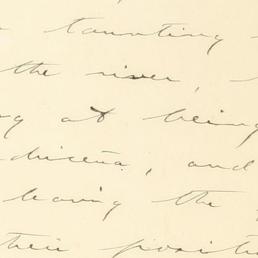 taunting
the river,
at being
and
leaving the
their positi